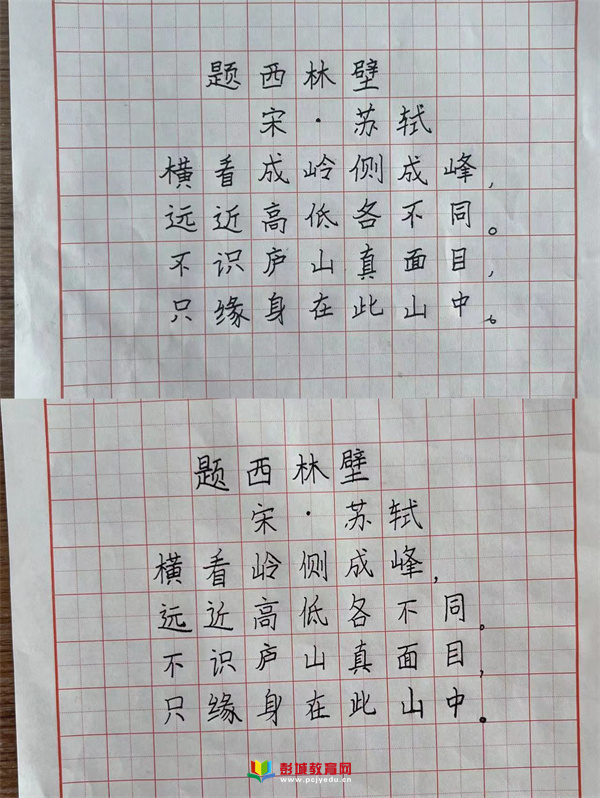 题西林壁
宋·苏轼
横看成岭侧成峰，
远近高低各不同。
不识庐山真面目，
只缘身在此山中。
题西林壁
宋·苏轼
横看岭侧成峰，
远近高低各不同。
不识庐山真面目，
只缘身在此山中。
彭城教育网
www.pcjyedu.cn